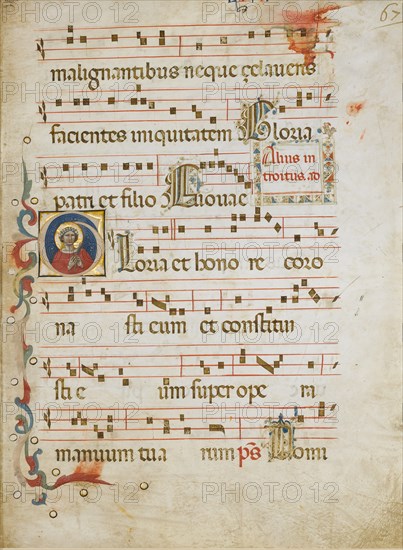 67
malignantibus neque çelaveris
facientes iniquitatem Gloria
Alius in
troitus. ad
patri et filio Euouae
Gloria et hono re coro
na sti eum et constitui
sti e um super ope ra
manuum tua rum ps Domi